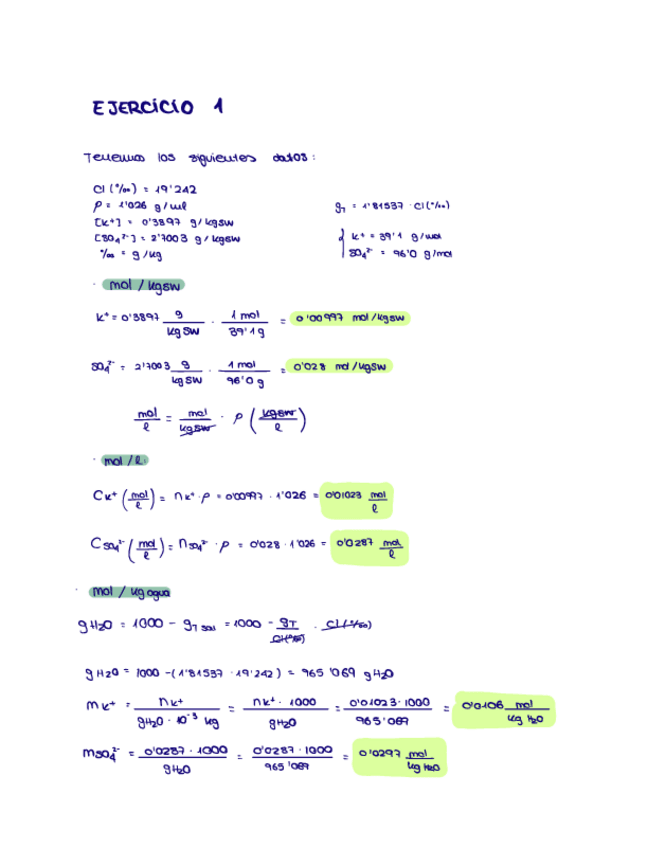 EJERCICIO 1
Tenemos los siguientes datos:
Cl (‰) = 19'242
ρ = 1'026 g/ml
gT = 1'81537 · Cl (‰)
[K+] = 0'3897 g/kgsw
[SO4²⁻] = 2'7003 g/kgsw
K+ = 39'1 g/mol
SO4²⁻ = 96'0 g/mol
‰ = g/kg
· mol / kgsw
K+ = 0'3897 g/kg SW · 1 mol/39'1 g = 0'00997 mol/kgsw
SO4²⁻ = 2'7003 g/kg SW · 1 mol/96'0 g = 0'028 mol/kgsw
mol/l = mol/kgsw · ρ (kgsw/l)
· mol / l.
CK+ (mol/l) = nK+ · ρ = 0'00997 · 1'026 = 0'01023 mol/l
CSO4²⁻ (mol/l) = nSO4²⁻ · ρ = 0'028 · 1'026 = 0'0287 mol/l
· mol / kg agua
gH2O = 1000 - gT sal = 1000 - gT/Cl(‰) · Cl (‰)
gH2O = 1000 - (1'81537 · 19'242) = 965'069 gH2O
mK+ = nK+/gH2O · 10⁻³ kg = nK+ · 1000/gH2O = 0'01023 · 1000/965'069 = 0'0106 mol/kg H2O
mSO4²⁻ = 0'0287 · 1000/gH2O = 0'0287 · 1000/965'069 = 0'0297 mol/kg H2O